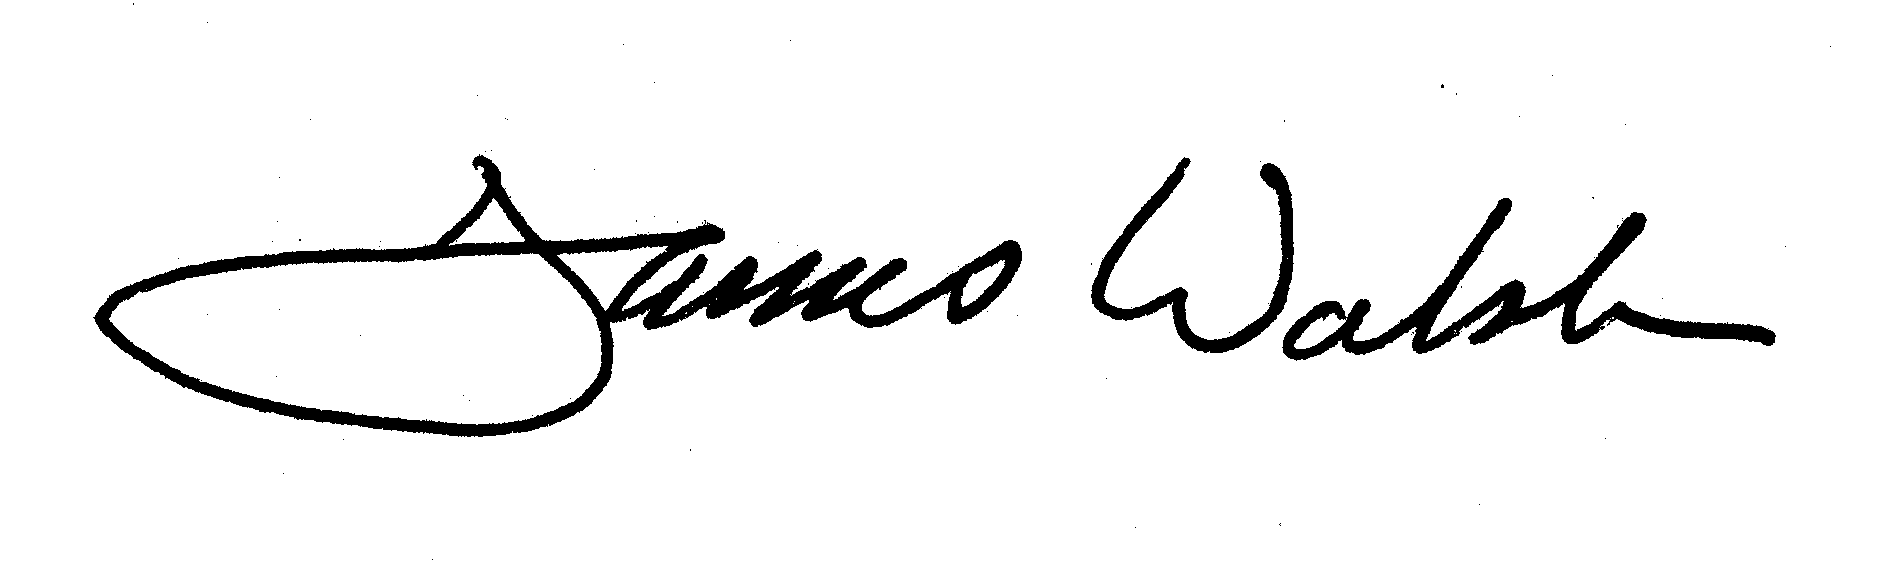 James Walsh